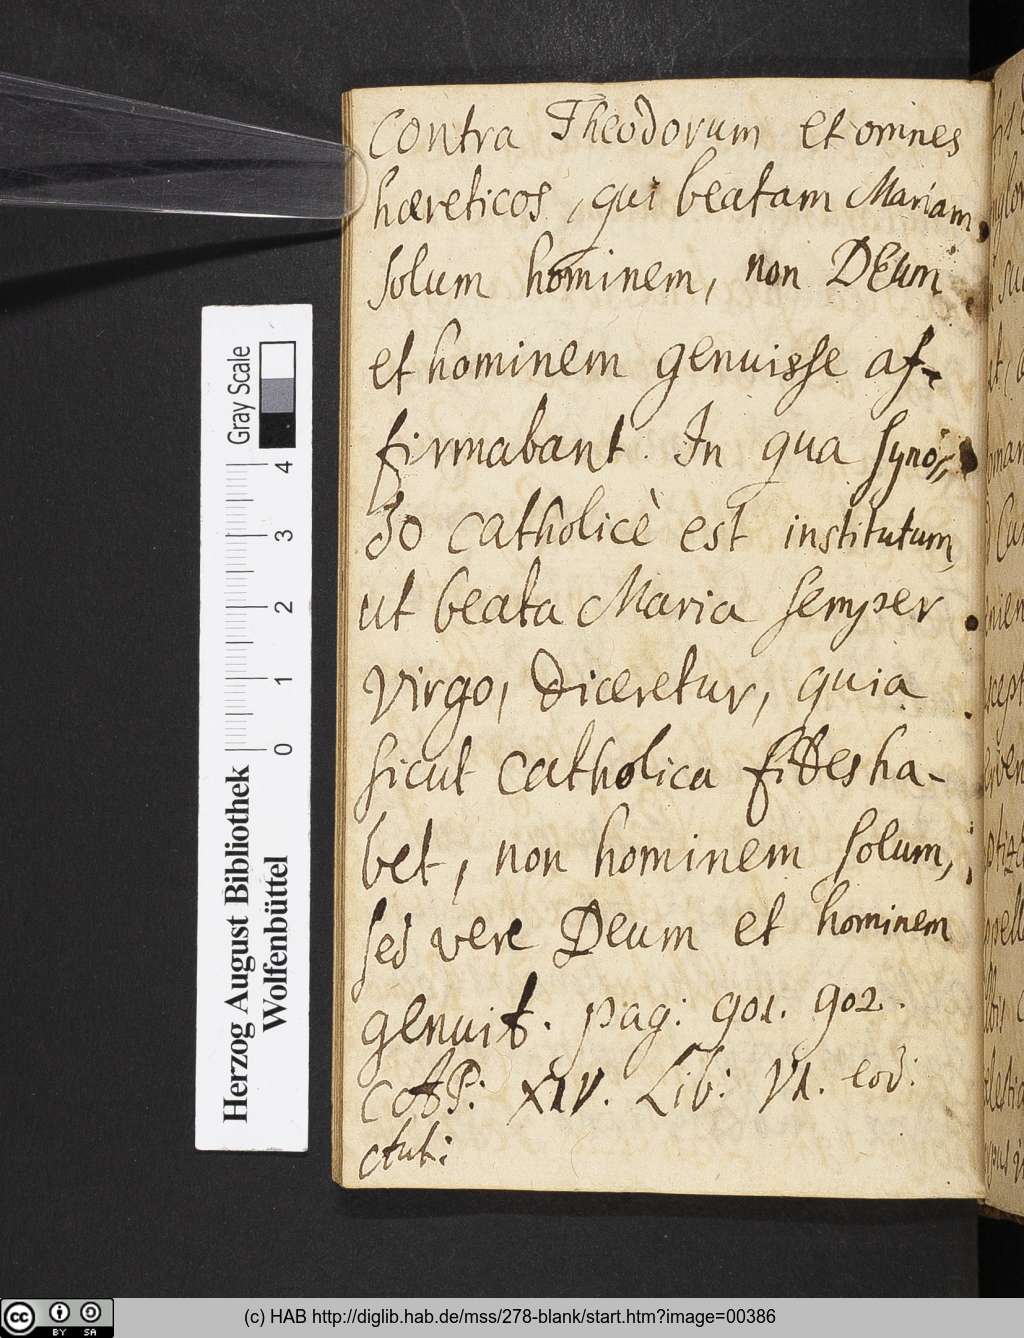 Contra Theodorum et omnes
hæreticos, qui beatam Mariam
solum hominem, non DEum
et hominem genuisse af-
firmabant. In qua syno-
do catholicè est institutum,
ut beata Maria semper
Virgo, diceretur, quia
sicut catholica fides ha-
bet, non hominem solum,
sed vere Deum et hominem
genuit. pag: 901. 902.
CAP: XIV. Lib: VI. eod:
Aut:
Gray Scale
4
3
2
1
0
Herzog August Bibliothek
Wolfenbüttel
cc BY SA
(c) HAB http://diglib.hab.de/mss/278-blank/start.htm?image=00386